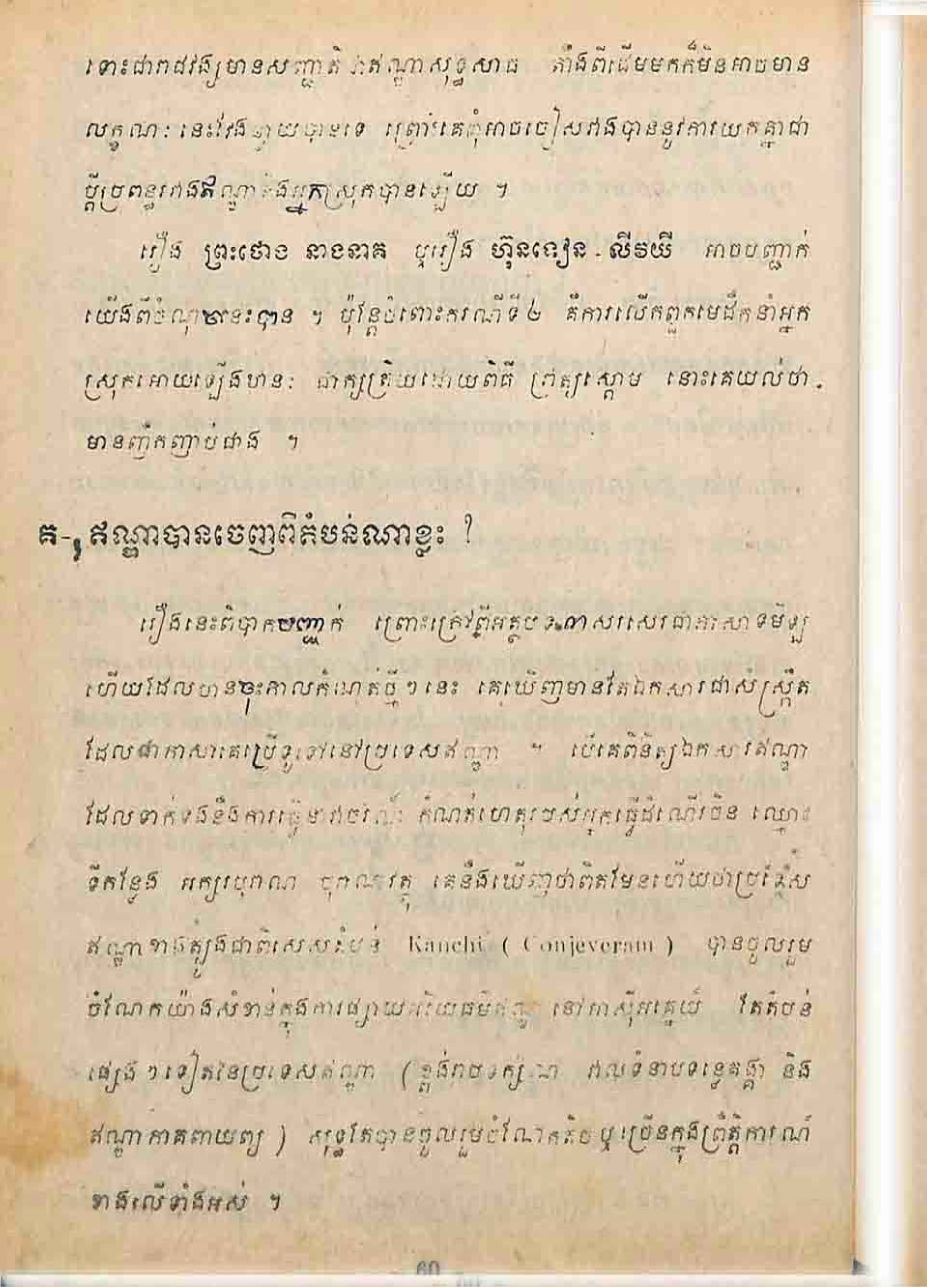 ទោះជារាជវង្សមានសញ្ជាតិ ឥណ្ឌាសុទ្ធសាធ តាំងពីដើមមកក៏មិនអាចមាន
លក្ខណៈនេះវែងឆ្ងាយបានទេ ព្រោះគេពុំអាចចៀសវាងបាននូវការយកគ្នាជា
ប្ដីប្រពន្ធរវាងឥណ្ឌានិងអ្នកស្រុកបានឡើយ ។
រឿង ព្រះថោង នាងនាគ ឬរឿង ហ៊ុនទៀន - លីវយី អាចបញ្ជាក់
យើងពីចំណុចនេះបាន ។ ប៉ុន្តែចំពោះករណីទី២ គឺការលើកពួកមេដឹកនាំអ្នក
ស្រុកអោយឡើងឋានៈ ជាក្សត្រិយដោយពិធី ព្រ័ត្យស្តោម នោះគេយល់ថា
មានញឹកញាប់ជាង ។
គ-, ឥណ្ឌាបានចេញពីតំបន់ណាខ្លះ ?
រឿងនេះពិបាកបញ្ជាក់ ព្រោះក្រៅពីអត្ថបទ សរសេរជាភាសាទមិឡ
ហើយដែលមានចុះកាលកំណត់ថ្មីៗនេះ គេឃើញមានតែឯកសារជាសំស្ក្រឹត
ដែលជាភាសាគេប្រើទូទៅនៅប្រទេសឥណ្ឌា ។ បើគេពិនិត្យឯកសារឥណ្ឌា
ដែលទាក់ទងនឹងការធ្វើ កំណត់ហេតុរបស់អ្នកធ្វើដំណើរចិន ឈ្មោះ
ទីកន្លែង អក្សរបុរាណ បុរាណវត្ថុ គេនឹងឃើញថាពិតមែនហើយថាប្រខ្ស៉ែស
ឥណ្ឌាខាងត្បូងជាពិសេសតំបន់ Kanchi ( Conjeveram ) បានចូលរួម
ចំណែកយ៉ាងសំខាន់ក្នុងការផ្សាយអរិយធម៌ឥណ្ឌា នៅអាស៊ីអគ្នេយ៍ តែតំបន់
ផ្សេងៗទៀតនៃប្រទេសឥណ្ឌា ( ខ្ពង់រាបទក្ស៍ណ វាលទំនាបទន្លេគង្គា និង
ឥណ្ឌាភាគពាយព្យ ) សុទ្ធតែបានចូលរួមចំណែកតិចឬច្រើនក្នុងព្រឹត្តិការណ៍
ខាងលើទាំងអស់ ។
60